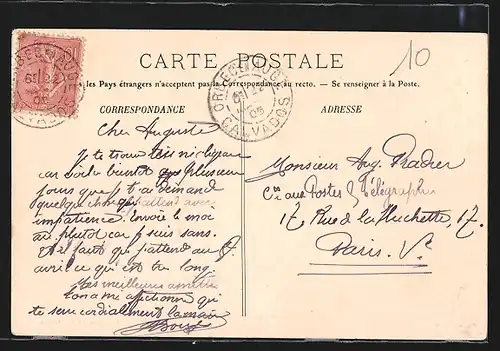 10
CARTE POSTALE
les Pays étrangers n'acceptent pas la Correspondance au recto. — Se renseigner à la Poste.
CORRESPONDANCE
ADRESSE
ORBEC EN AUGE
CALVADOS
Cher Auguste
Je te trouve très négligeant
car voilà bientôt plusieurs
jours que je t'ai demandé
quelque chose j'attend avec
impatience. Envoie le moi
au plutôt car je suis sans.
faut que j'attend au
avril ce qui est trop long.
Les meilleures amitiés
ton ami affectionné qui
te serre cordialement la main
Monsieur Aug. Pradier
Cis aux Postes & Télégraphes
17, Rue de la Huchette, 17.
Paris. Ve